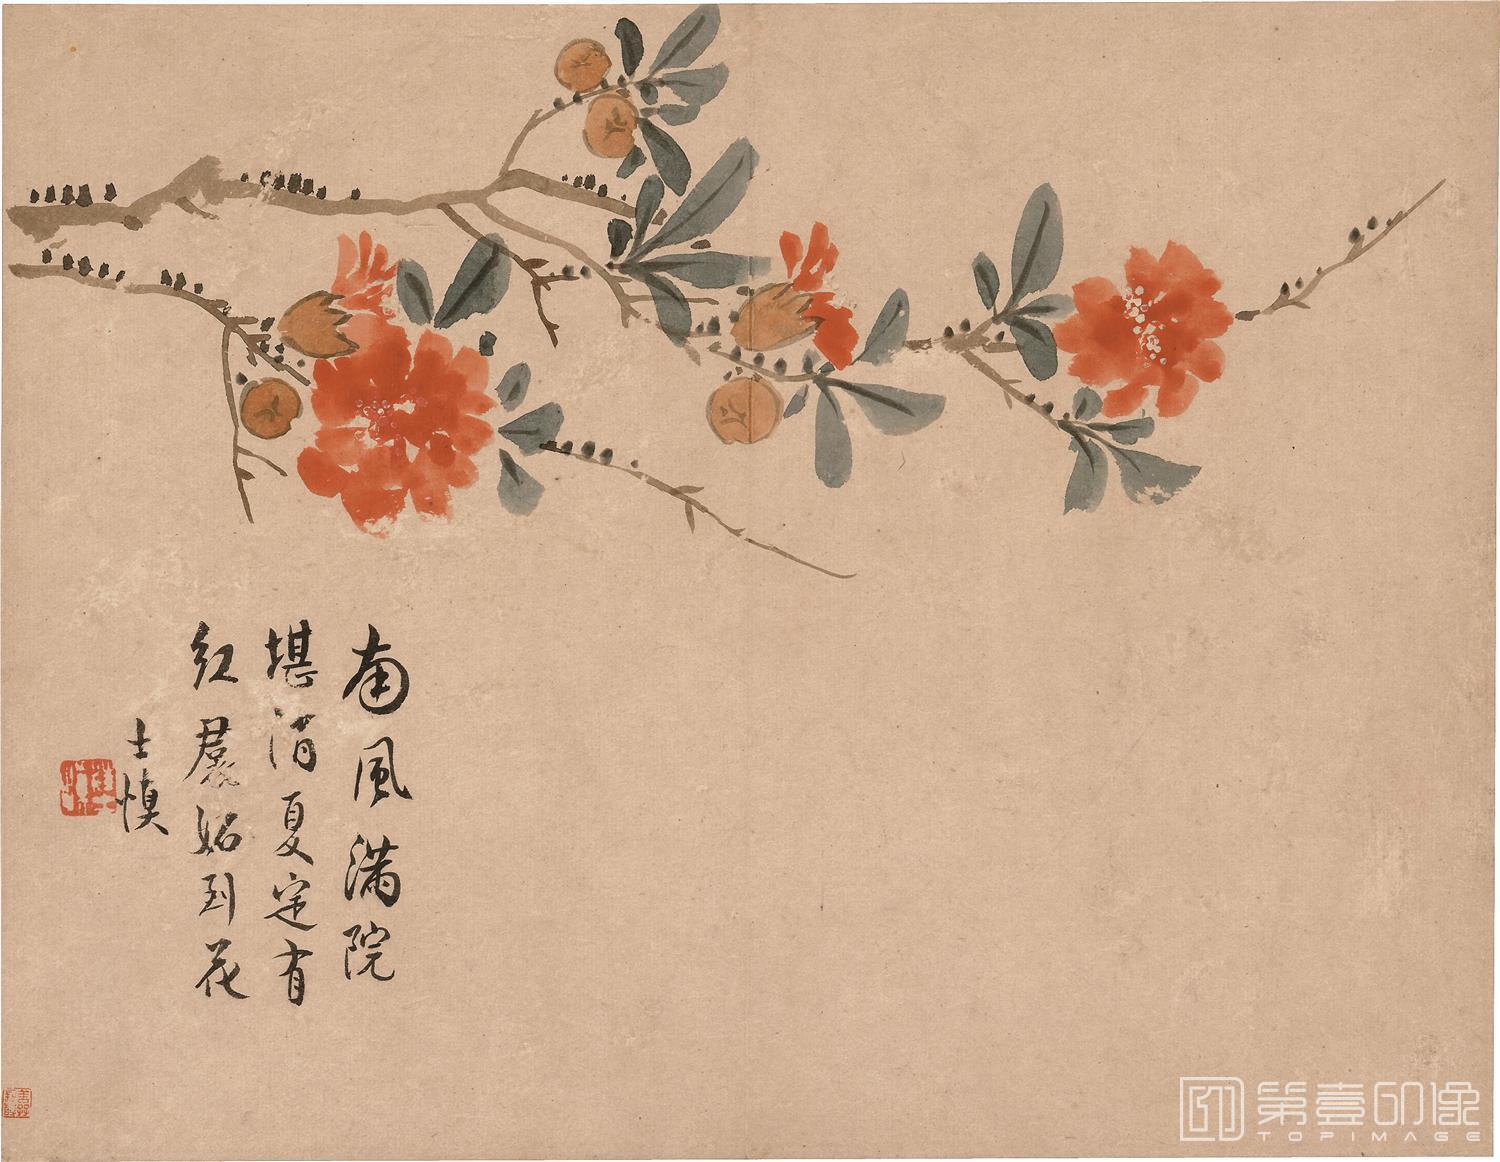 南風滿院
堪消夏定有
紅裙妬到花
士慎
第壹印像
TOPIMAGE